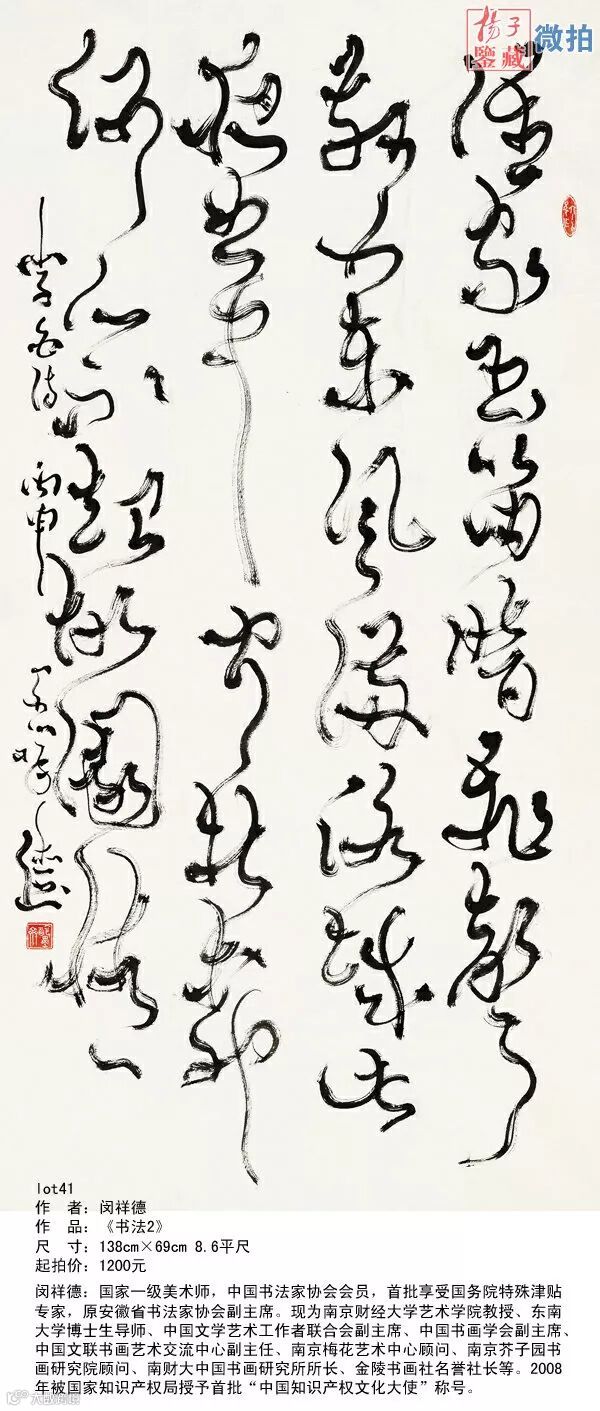 楊子
鑒藏
微拍
誰家玉笛暗飛聲
散入東風滿洛城此
夜曲中聞折柳
何人不起故園情
李白诗 丙申
lot41
作 者：闵祥德
作 品：《书法2》
尺 寸：138cm×69cm 8.6平尺
起拍价：1200元
闵祥德：国家一级美术师，中国书法家协会会员，首批享受国务院特殊津贴
专家，原安徽省书法家协会副主席。现为南京财经大学艺术学院教授、东南
大学博士生导师、中国文学艺术工作者联合会副主席、中国书画学会副主席、
中国文联书画艺术交流中心副主任、南京梅花艺术中心顾问、南京芥子园书
画研究院顾问、南财大中国书画研究所所长、金陵书画社名誉社长等。2008
年被国家知识产权局授予首批“中国知识产权文化大使”称号。